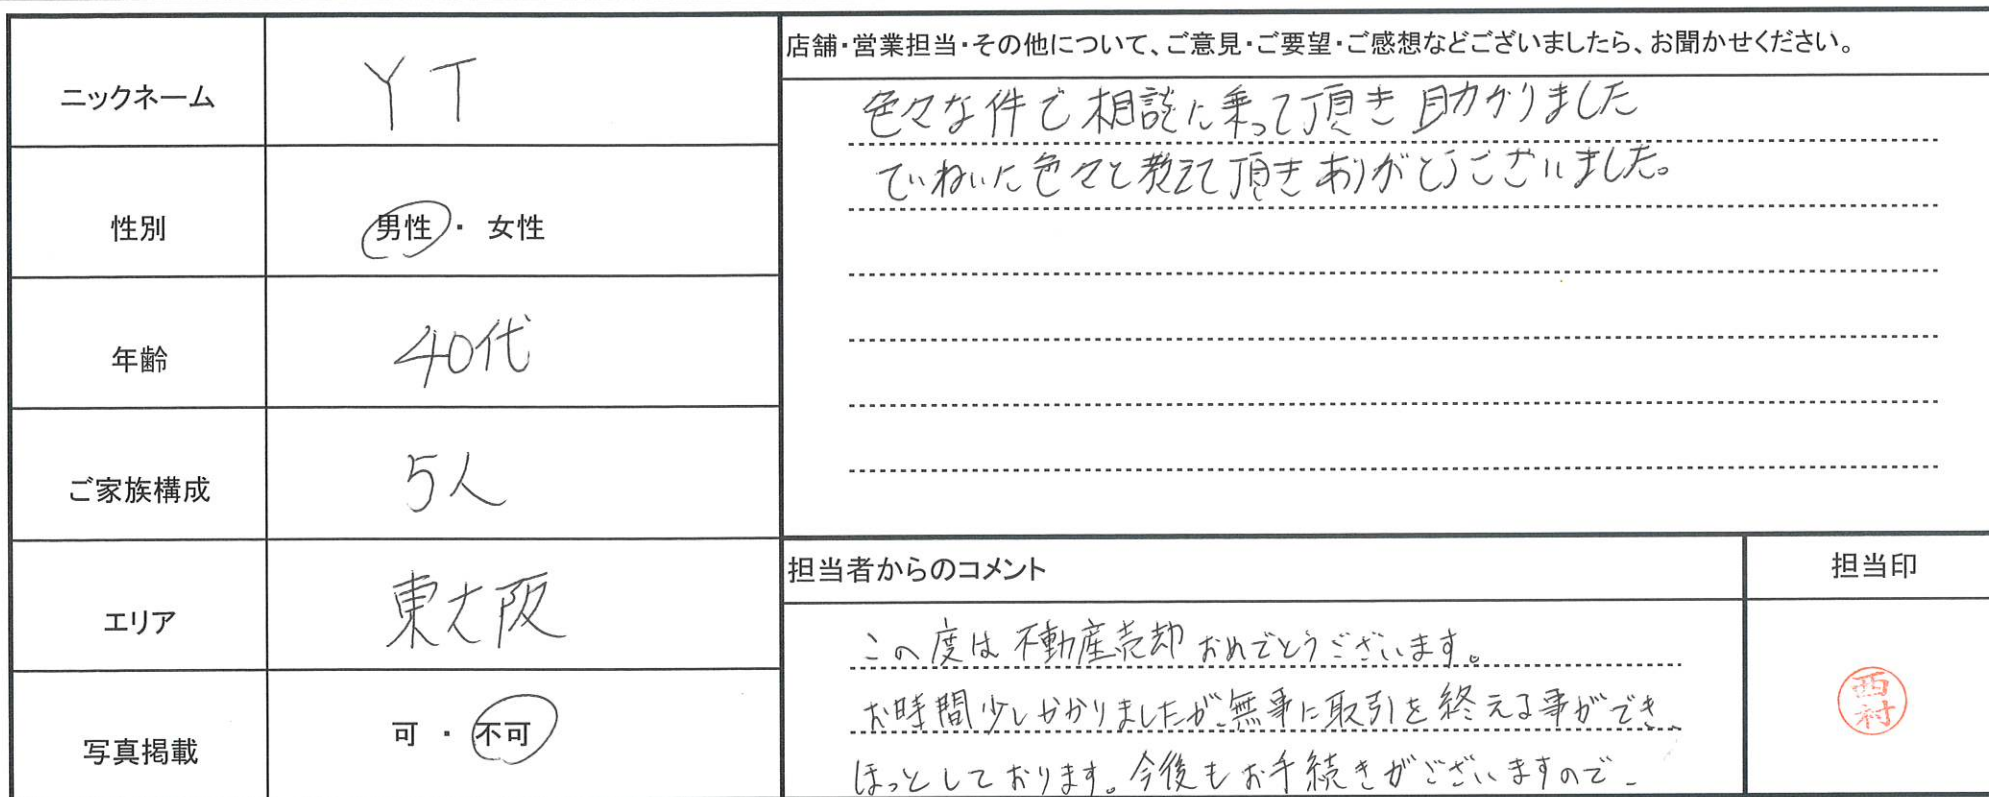 ニックネーム
YT
性別
男性・女性
年齢
40代
ご家族構成
5人
エリア
東大阪
写真掲載
可・不可
店舗・営業担当・その他について、ご意見・ご要望・ご感想などございましたら、お聞かせください。
色々な件で相談に乗って頂き助かりました
ていねいに色々と教えて頂きありがとうございました。
担当者からのコメント
この度は不動産売却おめでとうございます。
お時間少しかかりましたが、無事に取引を終える事ができ、
ほっとしております。今後もお手続きがございますので、
担当印
西村